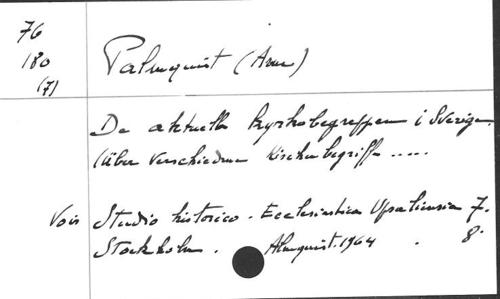 76
180
(7)
Palmquist (Arne)
De aktuella kyrkobegreppen i Sverige.
(Über verschiedene Kirchenbegriffe .....
Voir Studia historico-Ecclesiastica Upsaliensia 7.
Stockholm. Almquist. 1964. 8°